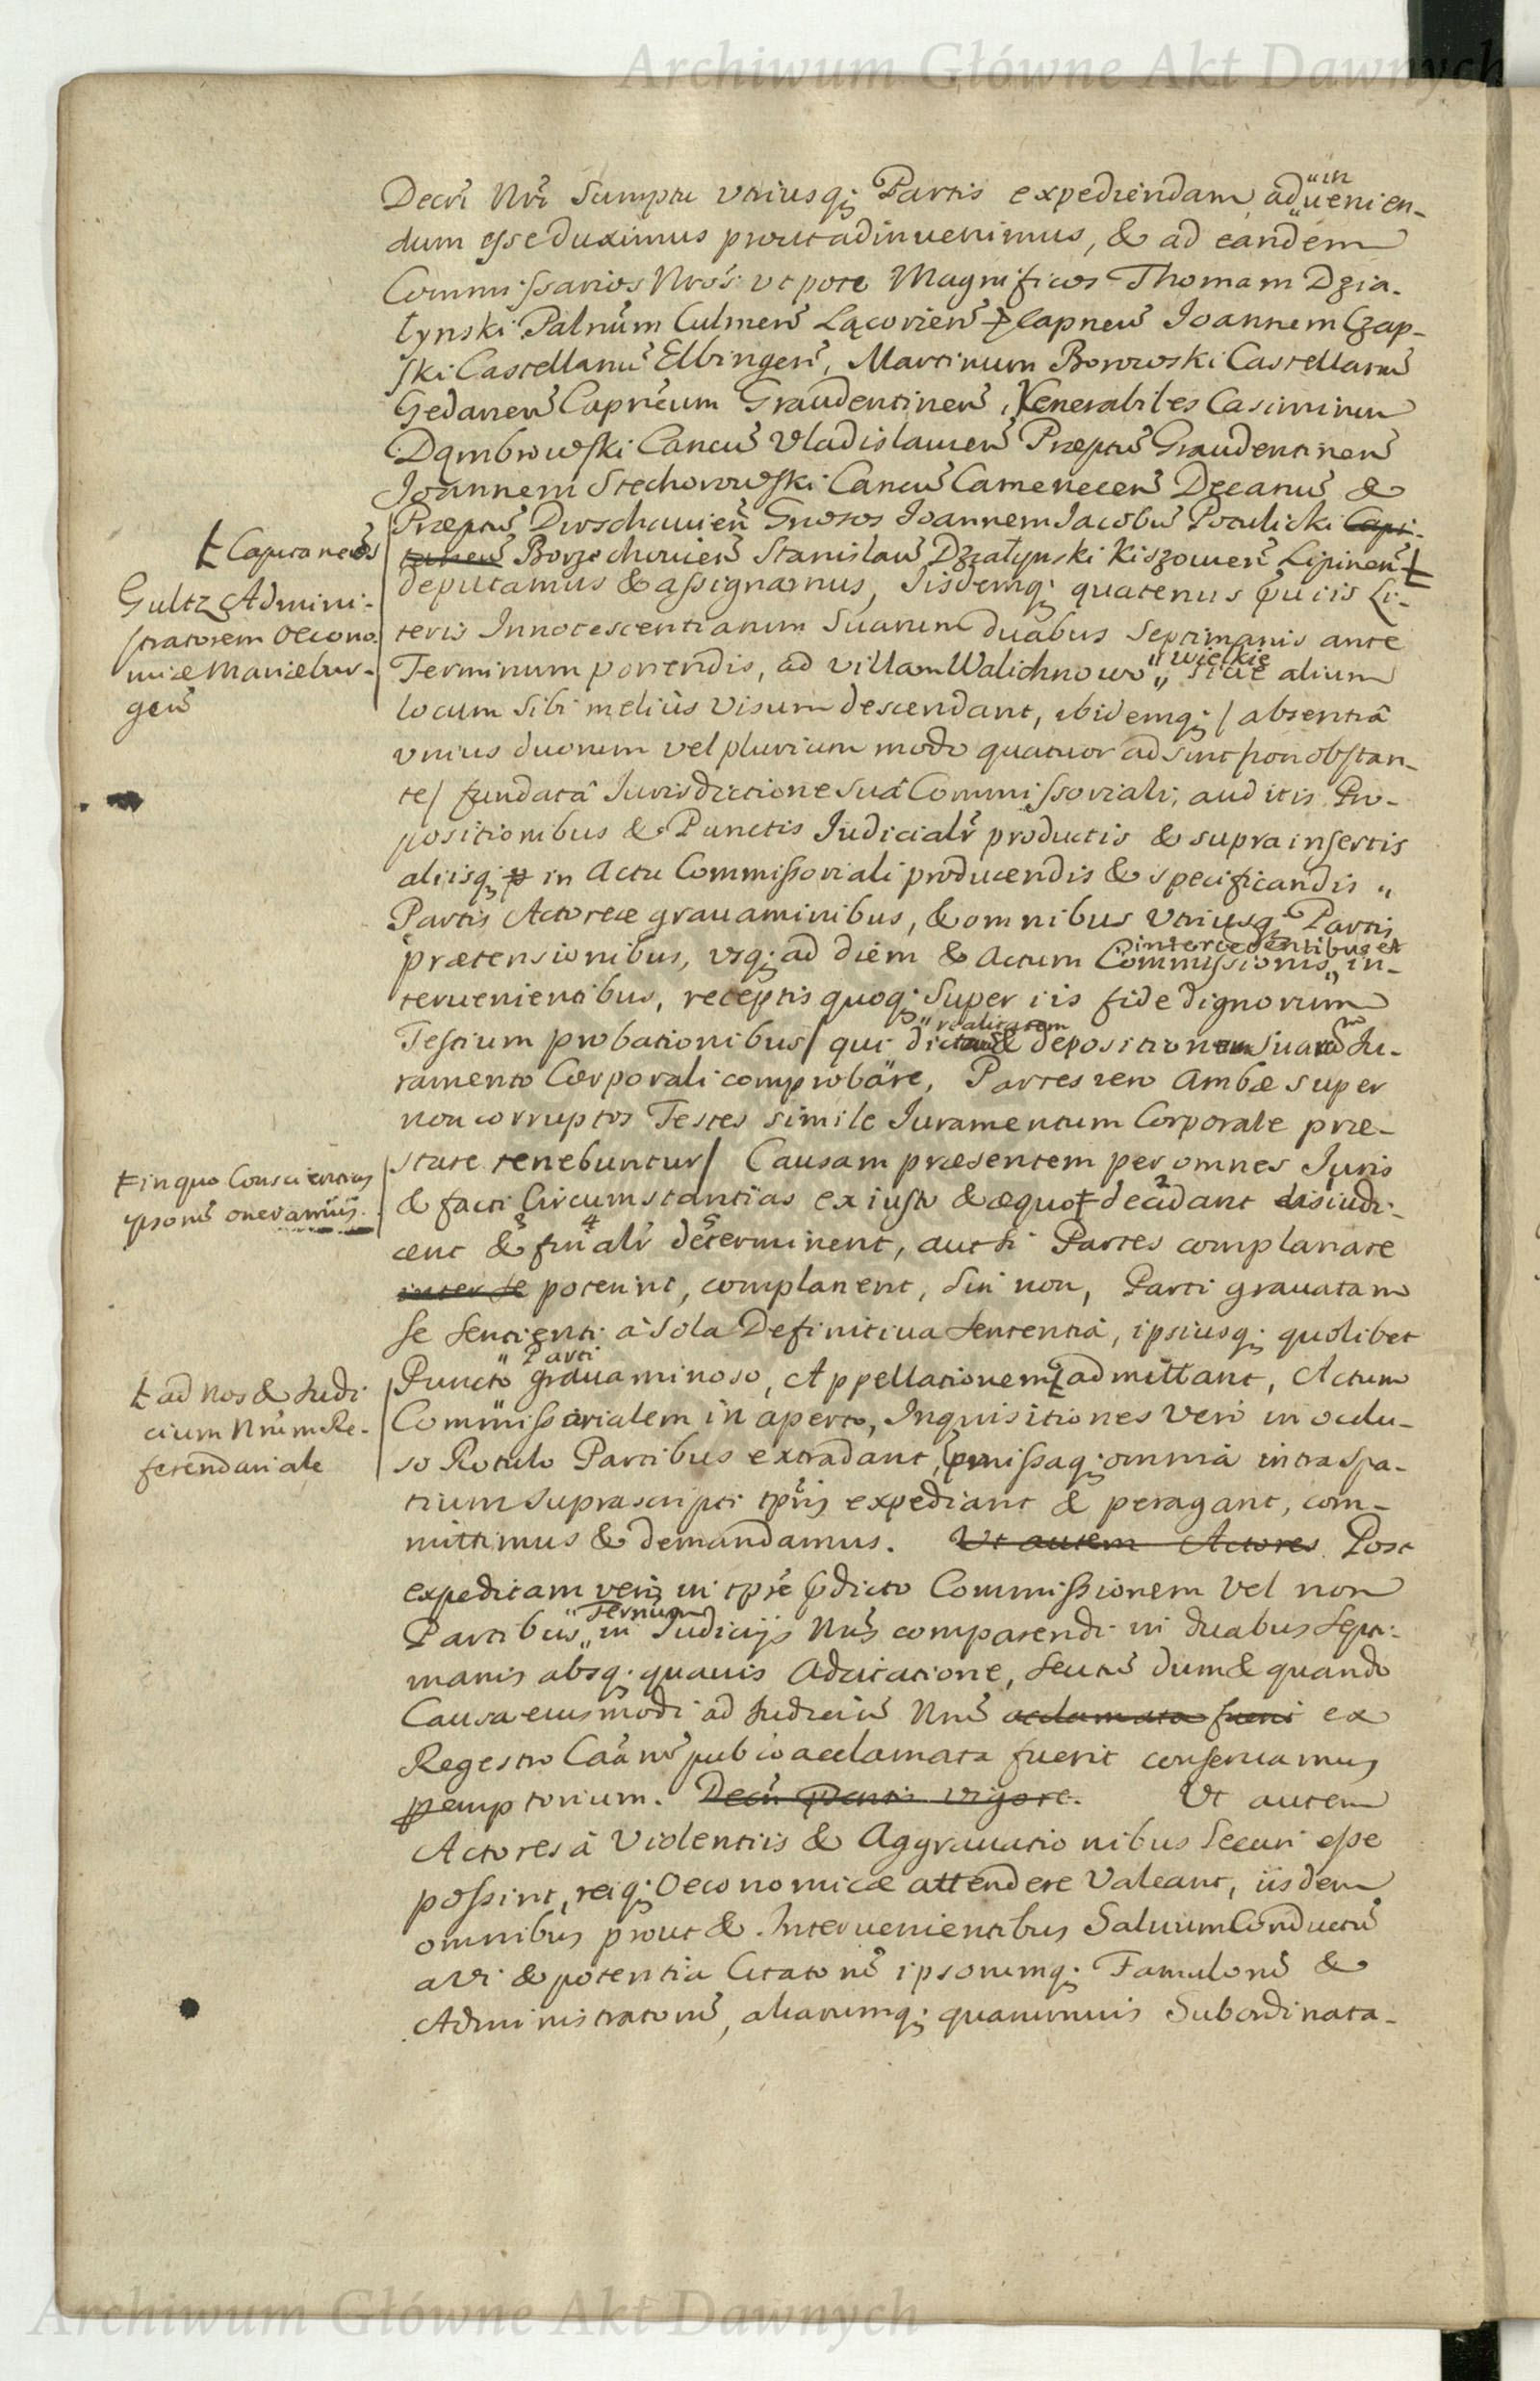 Archiwum Główne Akt Dawnych
Decri Nri Sumptu utriusq; Partis expediendam ad "in" uenien-
dum esse duximus prout adinuenimus, & ad eandem
Commissarios Nros ut pote Magnificos Thomam Dzia-
łynski Palnum Culmen Łącorien Capneu Ioannem Czap-
ski Castellanu Elbingen, Martinum Borowski Castellanu
Gedanen Capneum Graudentinen, Venerabiles Casimirum
Dąmbrowski Cancu Vladislauien Præptu Graudentinen
Joannem Stechorowski Cancu Camenecen Decanu &
Præptu Dirschauien Gnosos Ioannem Jacobu Potulicki Capi-
taneu Borzechouien Stanislau Działynski Kiszouien Lipinen Ł
Ł Capitaneos
Gultz Admini-
stratorem Oecono-
miæ Mariæbur-
gen
deputamus & assignamus, Iisdemq; quatenus puiis Li-
teris Innotescentiarum Suarum duabus Septimanis ante
Terminum ponendis, ad villam Walichnowo "Wielkie" siue alium
locum sibi meliùs visum descendant, ibidemq; / absentiâ
unius duorum vel plurium modo quatuor adsint non obstan-
te / fundatâ Iurisdictione suâ Commissoriali, auditis Pro-
positionibus & Punctis Iudicialr productis & supra insertis
aliisq; in Actu Commissoriali producendis & specificandis "
Partis Actoreæ grauaminibus, & omnibus utriusq; Partis
prætensionibus, usq; ad diem & Actum Commissionis "intercedentibus et" in-
teruenientibus, receptis quoq; super iis fide dignorum
Testium probationibus / qui "realitatem" & depositionem suam Ju-
ramento Corporali comprobare, Partes vero Ambæ super
non corruptos Testes simile Iuramentum Corporale præ-
stare tenebuntur / Causam præsentem per omnes Juris
& facti Circumstantias ex iusto & æquo Ł decidant 2 disiudi-
Ł in quo Conscientias
ipsoru oneramus.
cent & 3 finalr 4 determinent 5, aut si Partes complanare
inter se poterint, complanent, Sin non, Parti grauatam
se sentienti à sola Definitiua Sententia, ipsiusq; quolibet
Puncto "Parti" grauaminoso, Appellationem Ł admittant, Actum
Ł ad Nos & Iudi
cium Nrum Re-
ferendariale
Commissorialem in aperto, Inquisitiones Vero in oclu-
so Rotulo Partibus extradant, pmissaq; omnia intra spa-
tium suprascripti tpris expediant & peragant, com-
mittimus & demandamus. Ut autem Actores Post
expeditam vero in tpre pdicto Commissionem vel non
Partibus "Ternum" in Iudicijs Nris comparendi in duabus Septi-
manis absq; quauis Adcitatione, seu tu dum & quando
Causa eiusmodi ad Iudiciu Nru acclamata fueri ex
Regestro Caaru pub co acclamata fuerit conseruamus
pemptorium. Decri pntis vigore. Ut autem
Actores à Violentiis & Aggrauationibus Securi esse
possint, reiq; Oeconomicæ attendere Valeant, iisdem
omnibus prout & Interuenientibus Saluum Conductu
a vi & potentia Citatoru ipsorumq; Famuloru &
Administratoru, aliarumq; quarumuis Subordinata-
Archiwum Główne Akt Dawnych